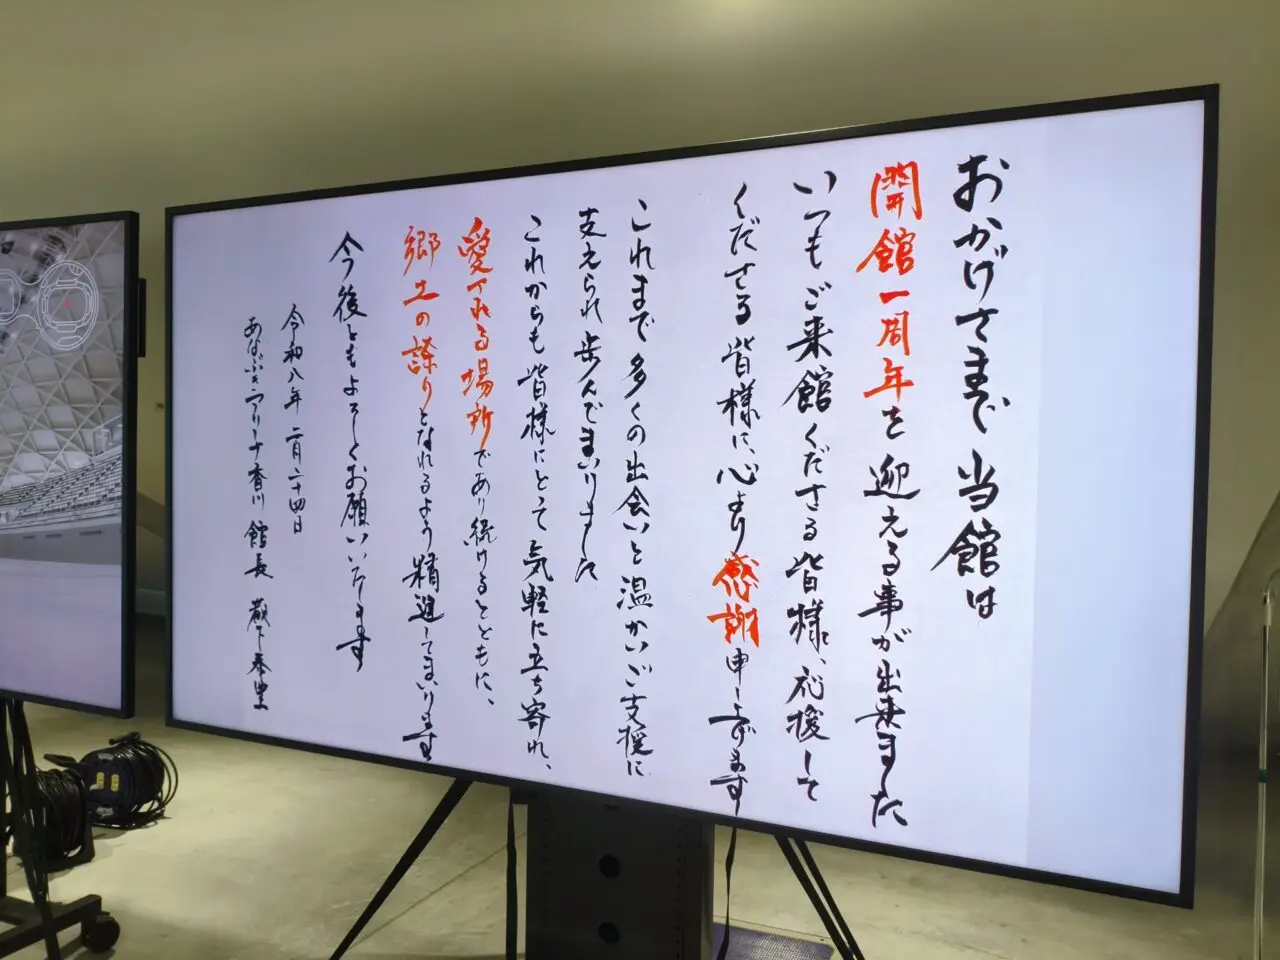 おかげさまで 当館は
開館一周年を 迎える事が出来ました
いつもご来館くださる皆様、応援して
くださる皆様に、心より感謝申し上げます
これまで多くの出会いと温かいご支援に
支えられ歩んでまいりました
これからも皆様にとって気軽に立ち寄れ、
愛される場所であり続けるとともに、
郷土の誇りとなれるよう精進してまいります
今後ともよろしくお願いいたします
令和八年 二月二十四日
あなぶきアリーナ香川 館長